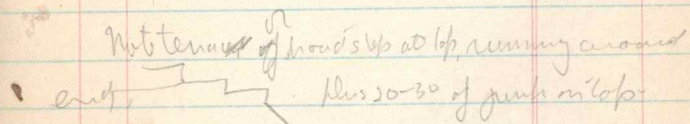 Note terrace of broad step at top, running around
end, plus 20-30 of junk on top.